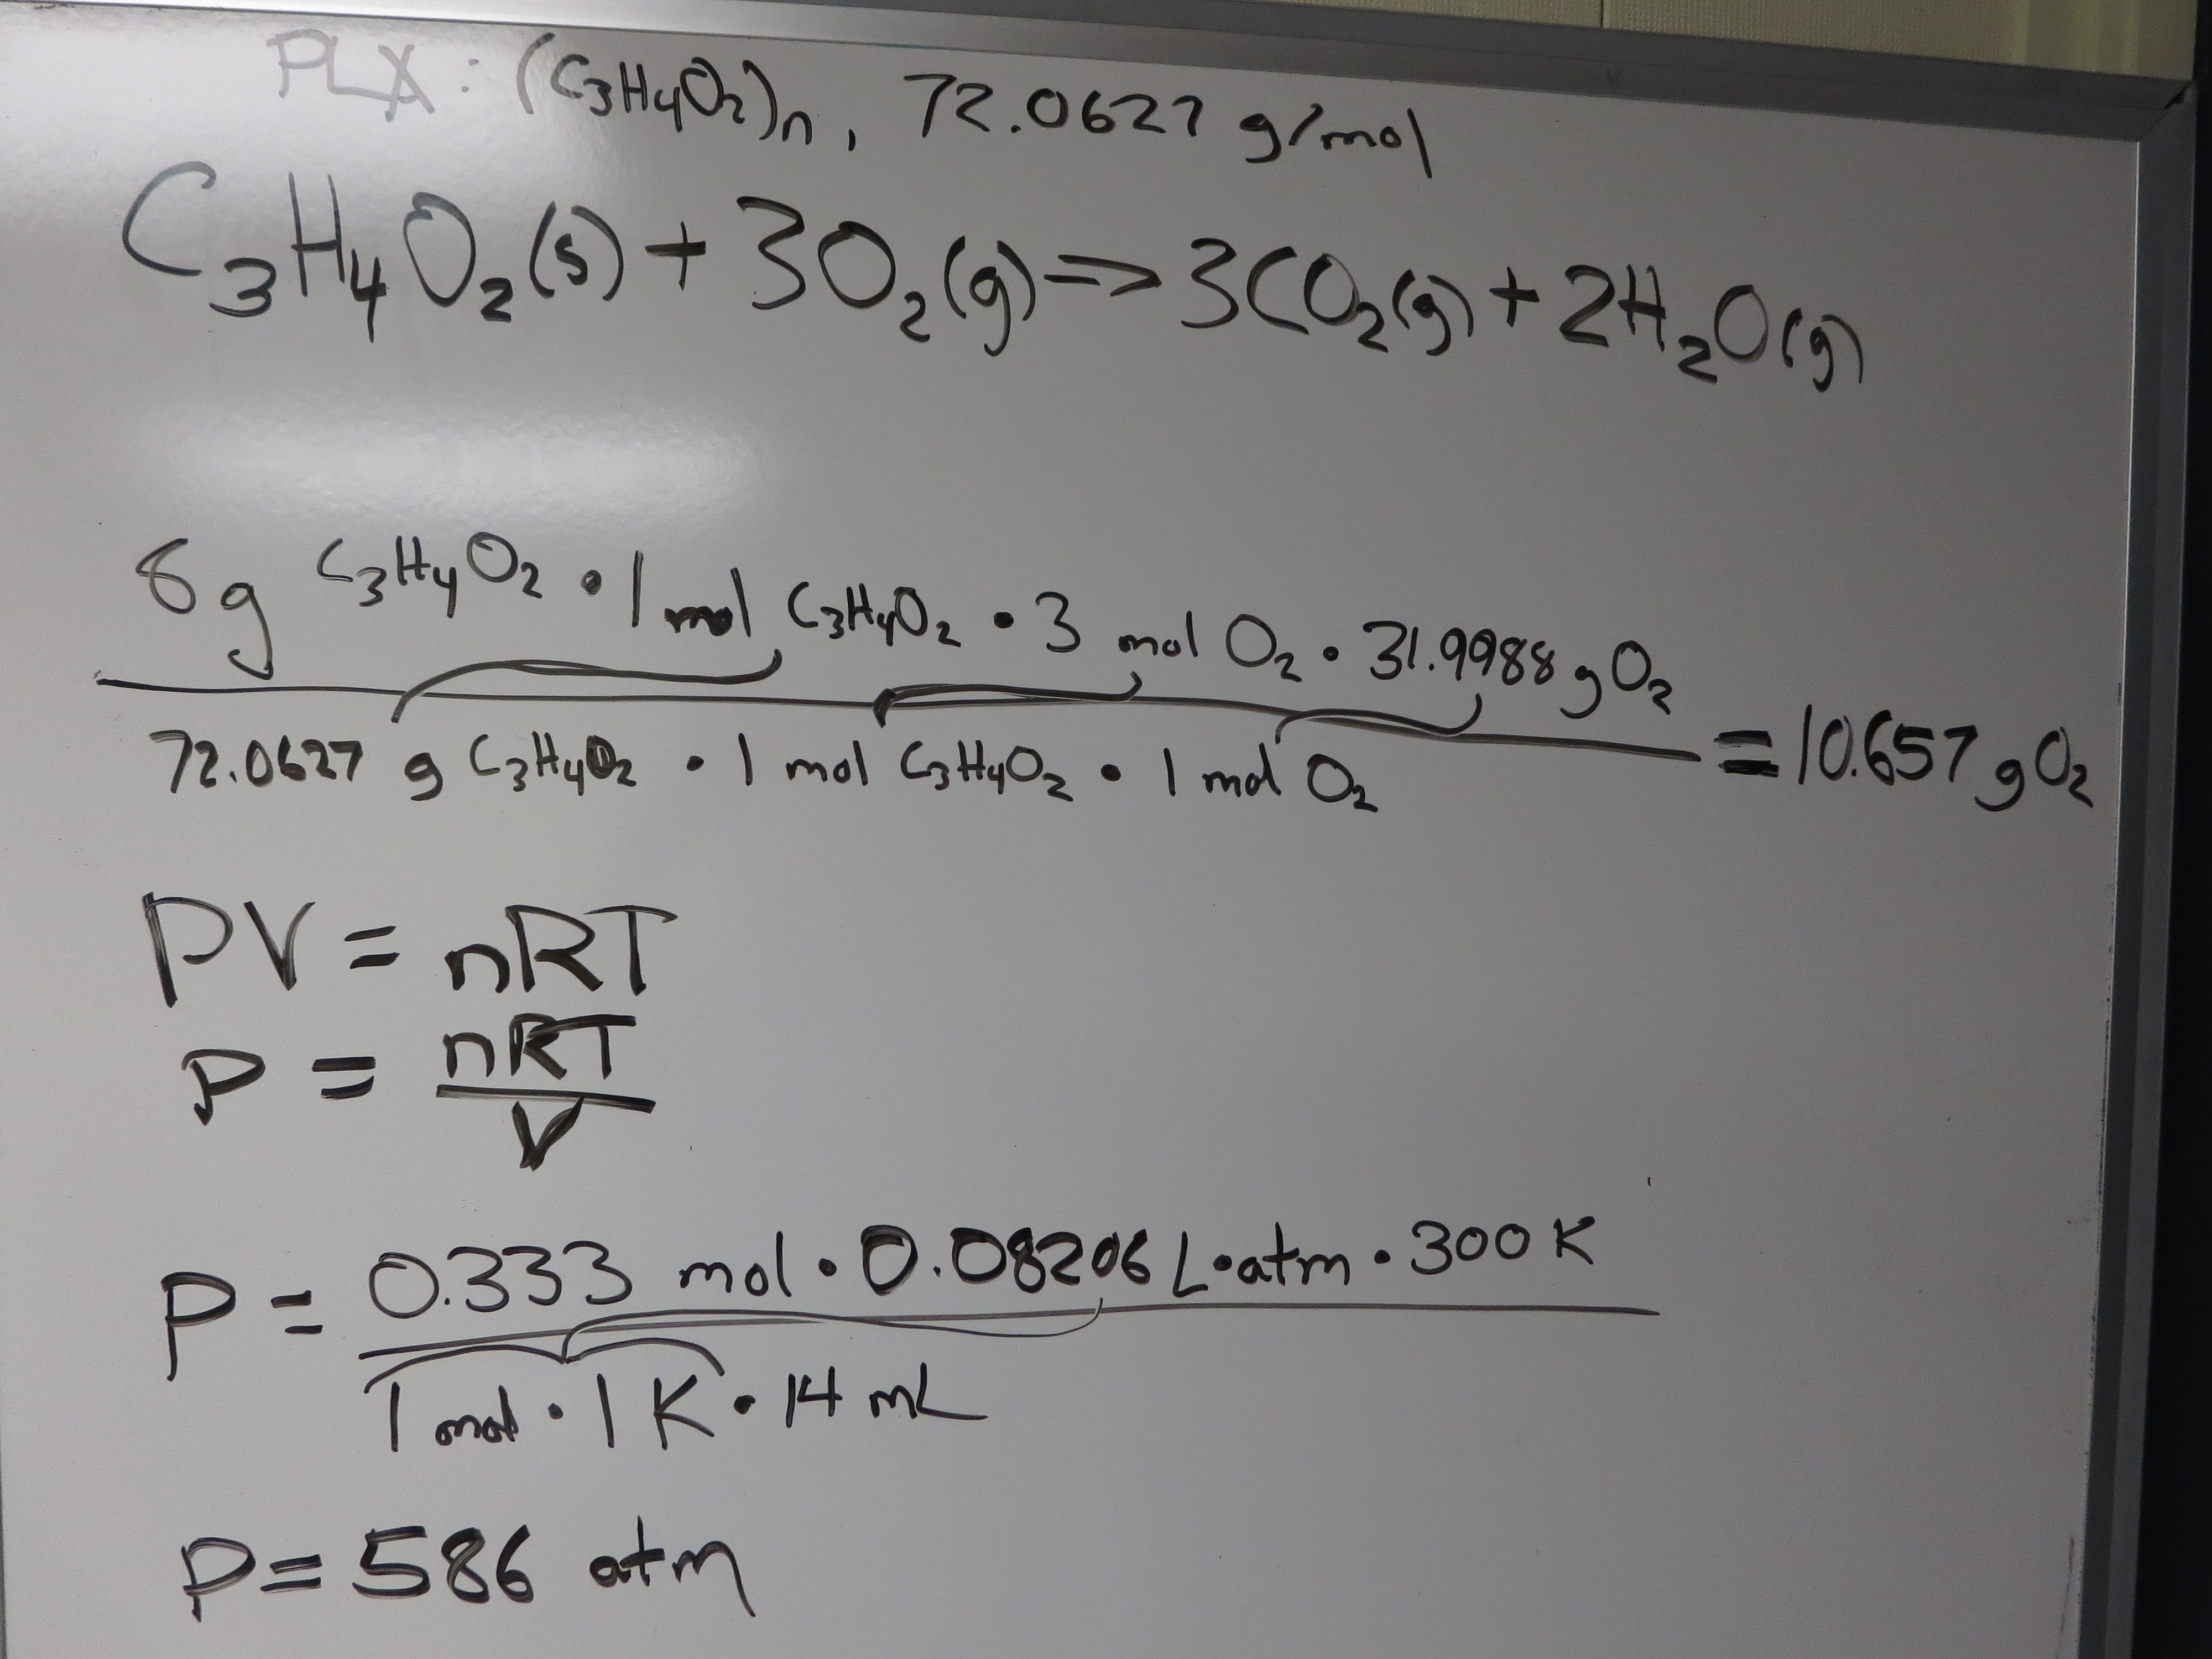 PLA : (C₃H₄O₂)n, 72.0627 g/mol
C₃H₄O₂(s) + 3O₂(g) => 3CO₂(g) + 2H₂O(g)
8g C₃H₄O₂ • 1 mol C₃H₄O₂ • 3 mol O₂ • 31.9988 g O₂
72.0627 g C₃H₄O₂ • 1 mol C₃H₄O₂ • 1 mol O₂ = 10.657 g O₂
PV = nRT
P = nRT
V
P = 0.333 mol • 0.08206 L•atm • 300 K
1 mol • 1 K • 14 mL
P = 586 atm